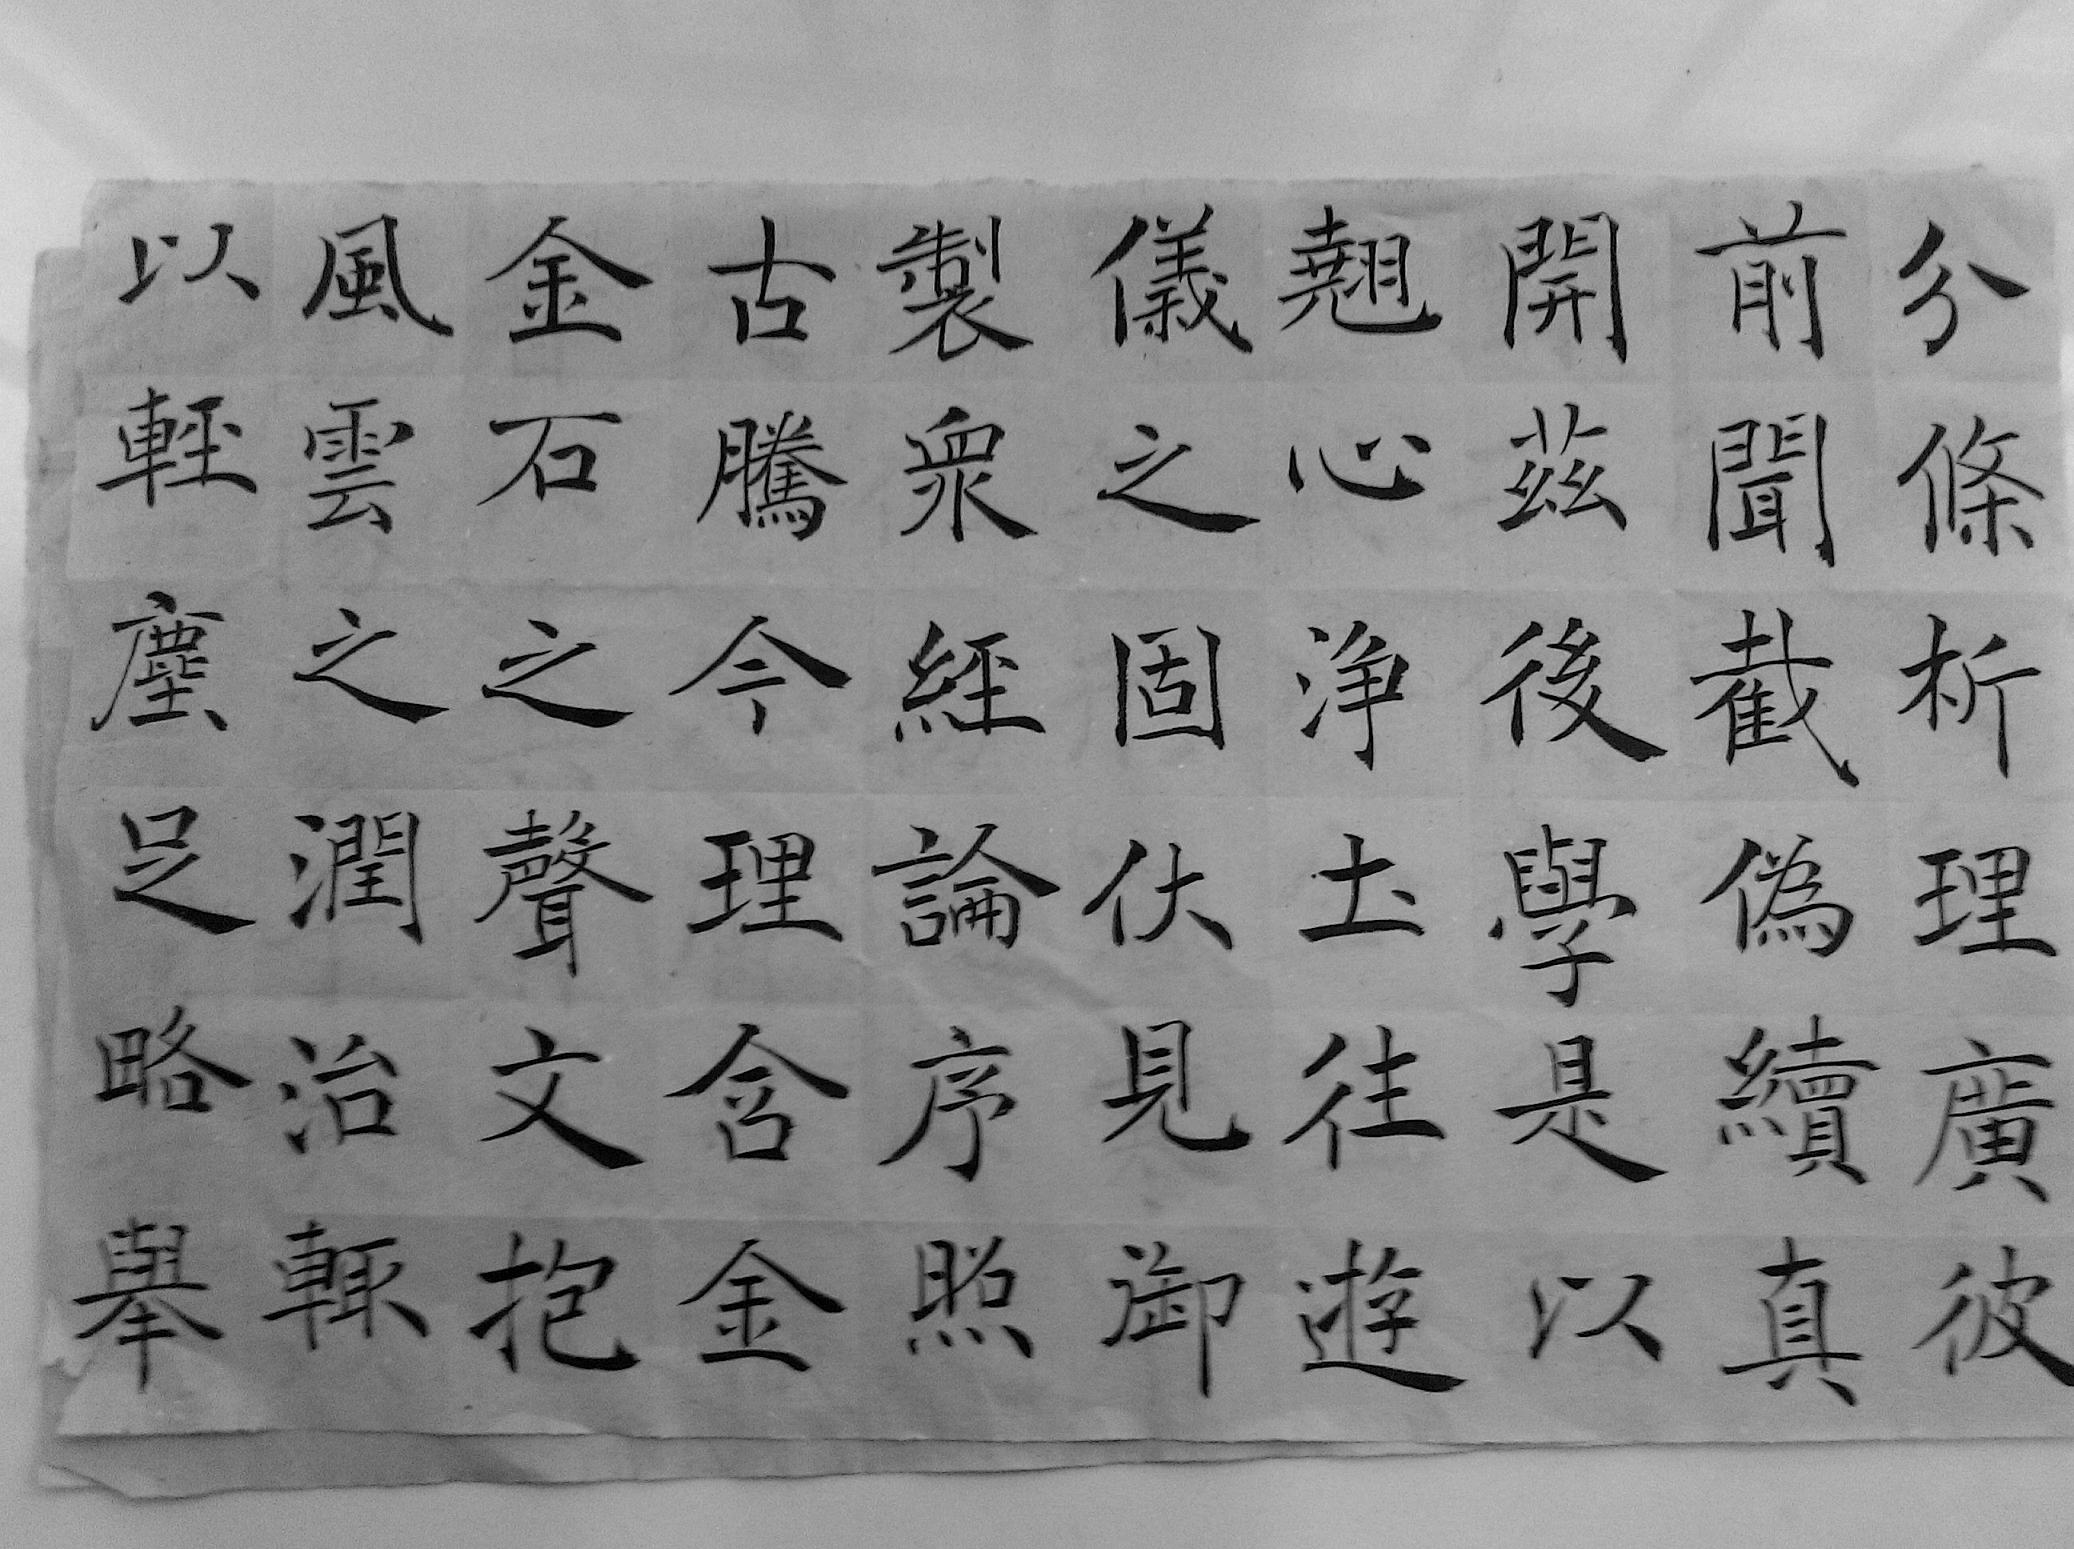 分條析理廣彼
前聞截偽續真
開茲後學是以
翹心淨土往遊
儀之固伏見御
製衆經論序照
古騰今理含金
金石之聲文抱
風雲之潤治輒
以輕塵足略舉